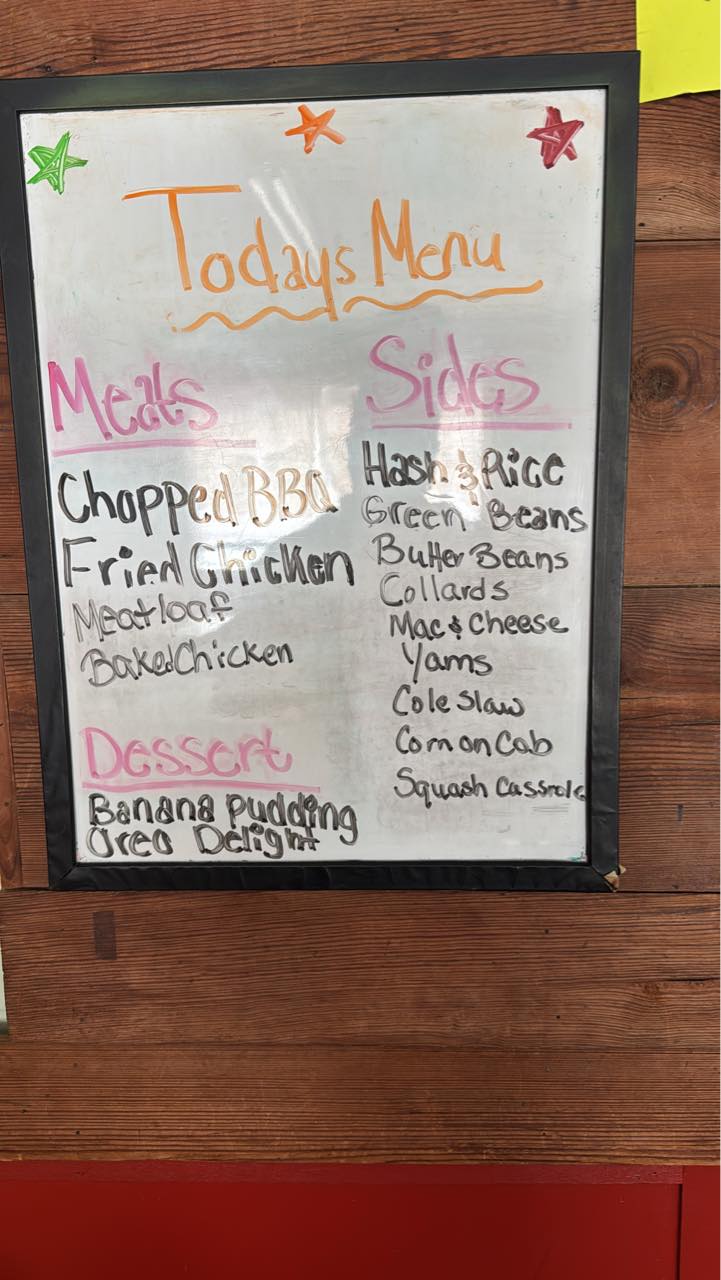 Todays Menu
Meats
Chopped BBQ
Fried Chicken
Meatloaf
Baked Chicken
Dessert
Banana Pudding
Oreo Delight
Sides
Hash & Rice
Green Beans
Butter Beans
Collards
Mac & Cheese
Yams
Cole Slaw
Corn on Cob
Squash Cassrole